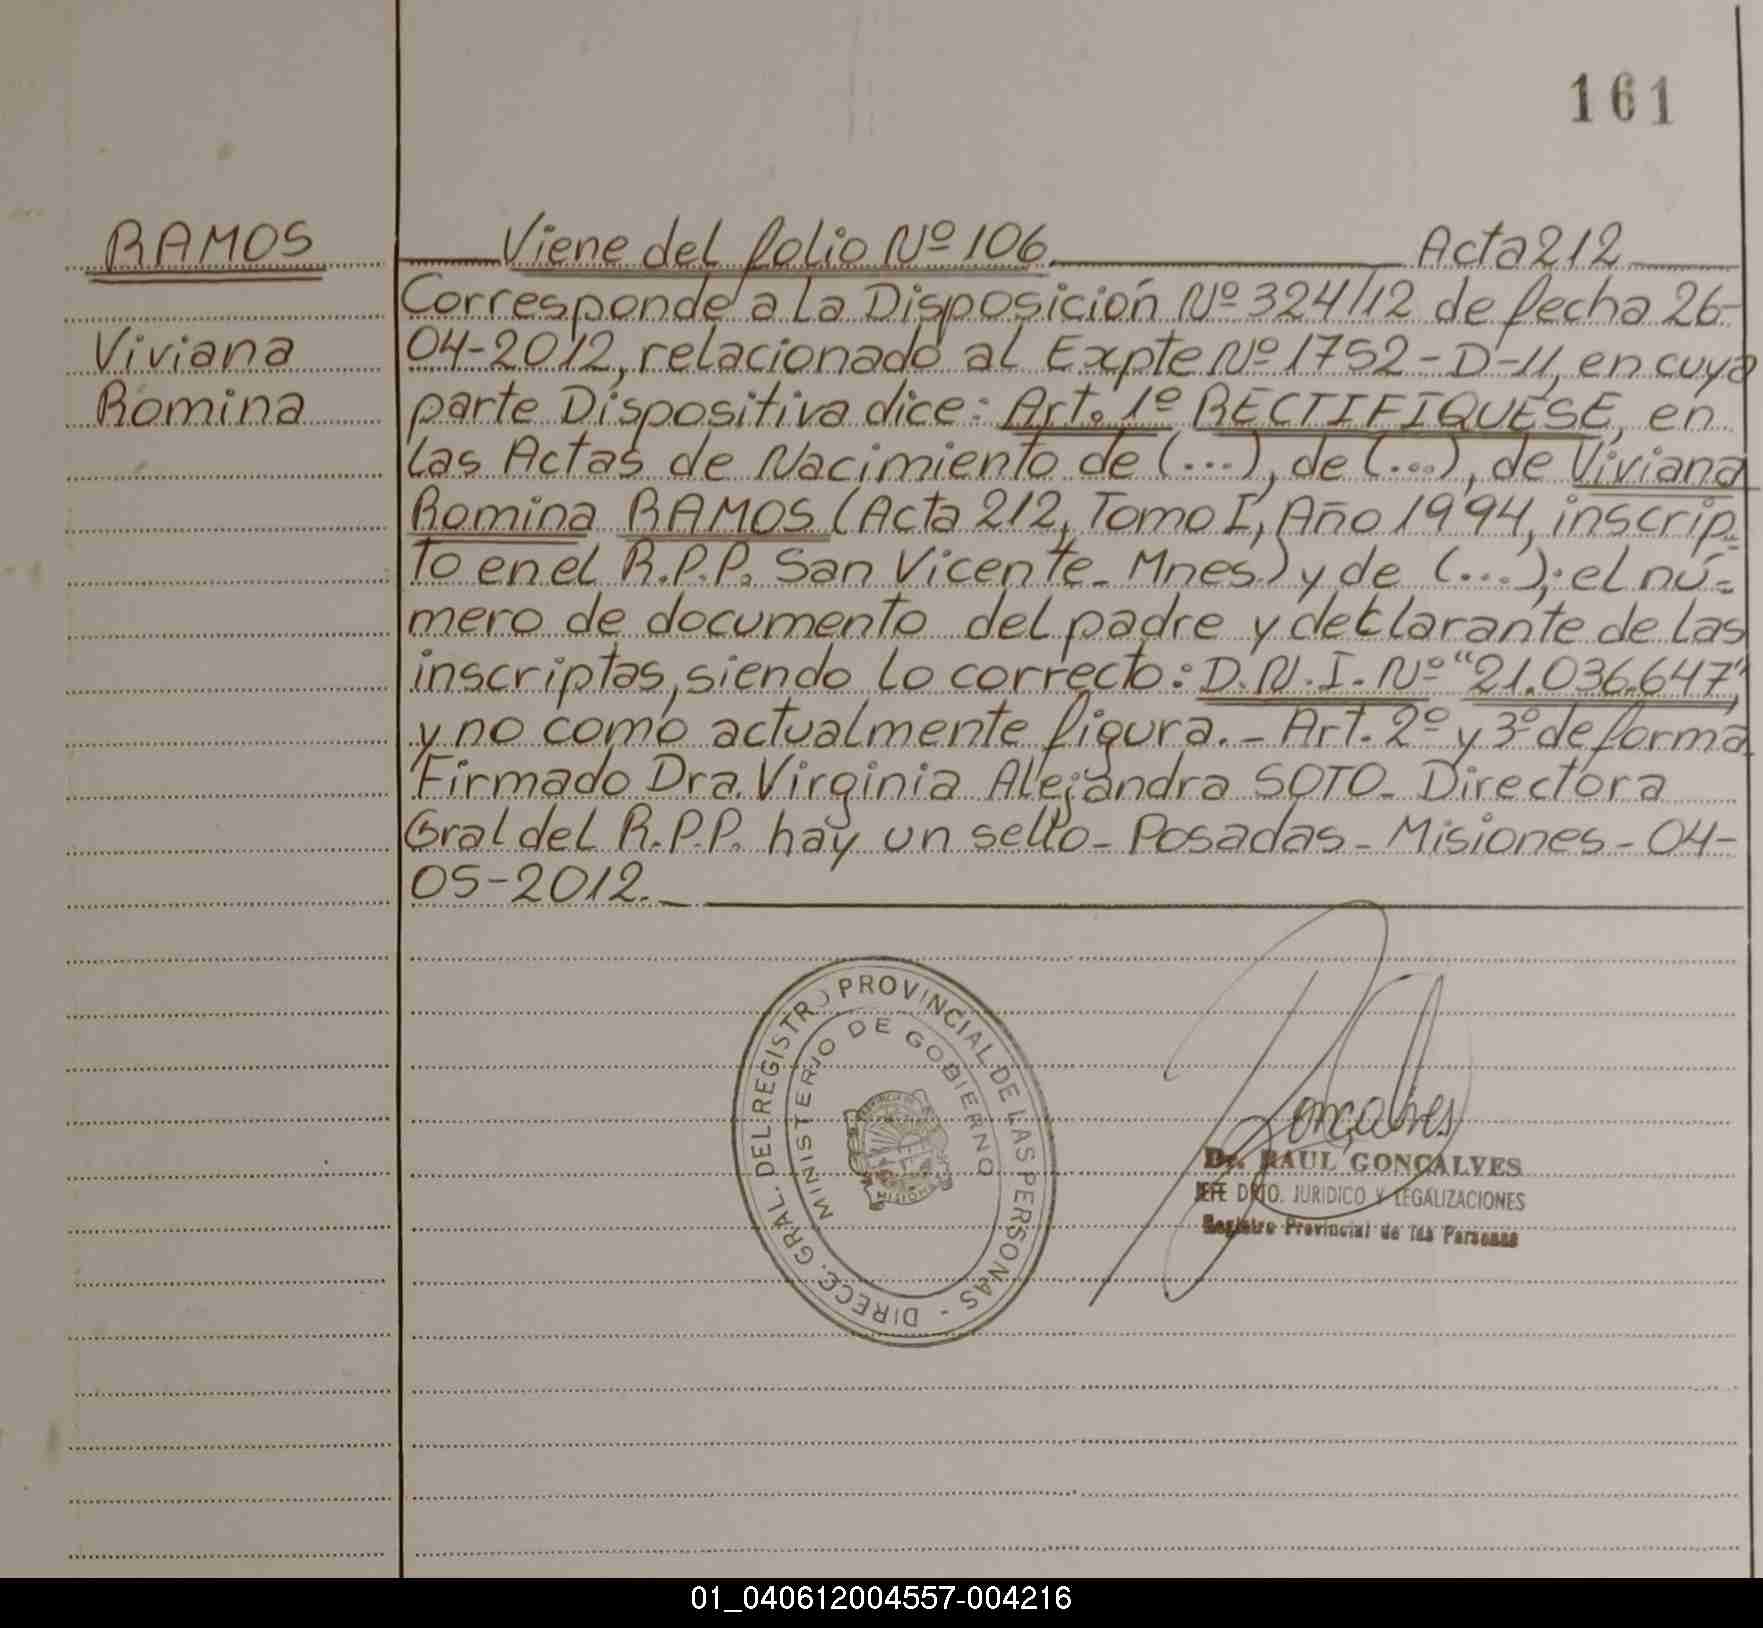 161
RAMOS
Viviana
Romina
Viene del folio Nº 106 Acta 212
Corresponde a la Disposición Nº 324/12 de fecha 26-
04-2012, relacionado al Expte Nº 1752-D-11, en cuya
parte Dispositiva dice: Art. 1º RECTIFIQUESE, en
las Actas de Nacimiento de (...), de (...), de Viviana
Romina RAMOS (Acta 212, Tomo I, Año 1994, inscrip-
to en el R.P.P. San Vicente_ Mnes) y de (...); el nú-
mero de documento del padre y declarante de las
inscriptas, siendo lo correcto: D.N.I. Nº "21.036.647",
y no como actualmente figura._ Art. 2º y 3º de forma
Firmado Dra. Virginia Alejandra SOTO_ Directora
Gral del R.P.P. hay un sello_ Posadas_ Misiones_ 04-
05-2012.
DIRECC. GRAL. DEL REGISTRO PROVINCIAL DE LAS PERSONAS -
MINISTERIO DE GOBIERNO
MISIONES
Gonçalves
Dr. RAUL GONÇALVES
JEFE DPTO. JURIDICO Y LEGALIZACIONES
Registro Provincial de las Personas
01_040612004557-004216